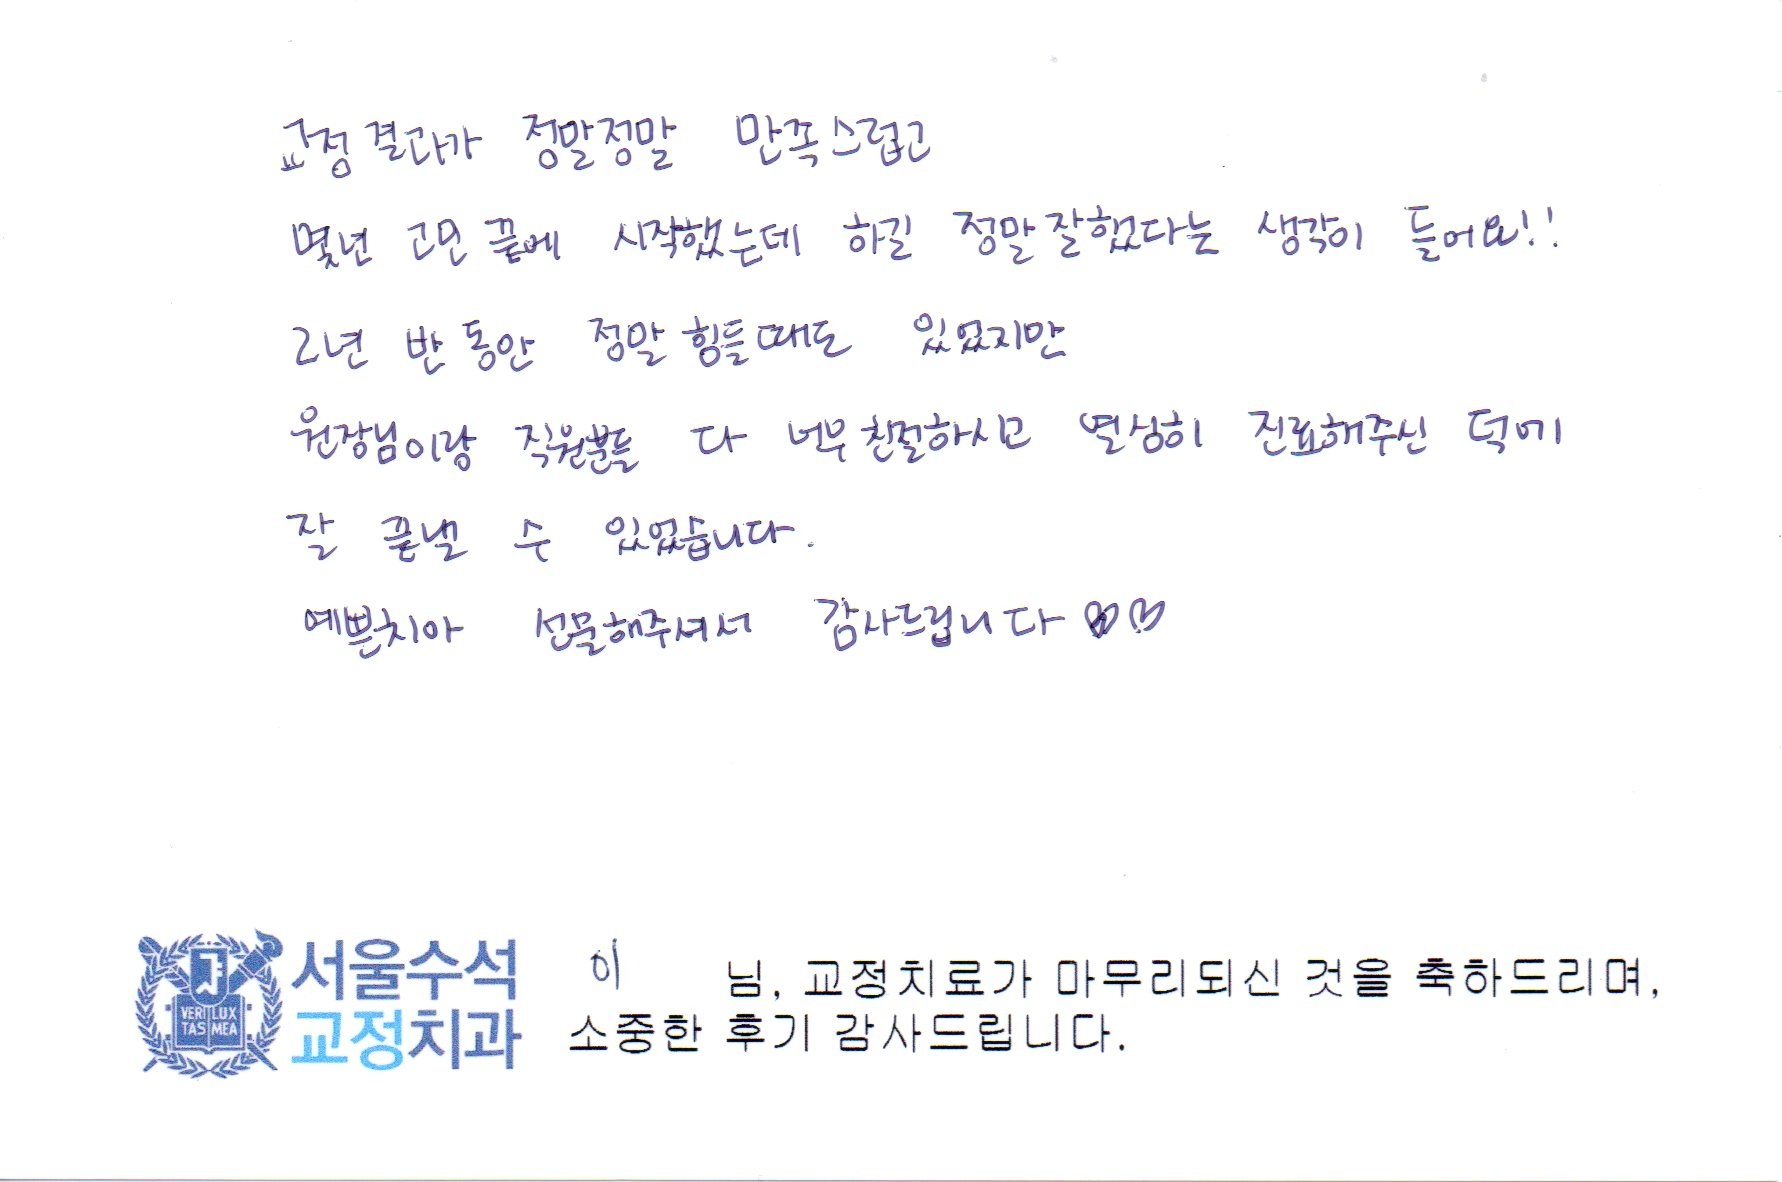 교정 결과가 정말정말 만족스럽고
몇년 고민 끝에 시작했는데 하길 정말 잘했다는 생각이 들어요!!
2년 반 동안 정말 힘들때도 있었지만
원장님이랑 직원분들 다 너무 친절하시고 열심히 진료해주신 덕에
잘 끝낼 수 있었습니다.
예쁜치아 선물해주셔서 감사드립니다 ♡♡
VERI LUX
TAS MEA
서울수석
교정치과
이 님, 교정치료가 마무리되신 것을 축하드리며,
소중한 후기 감사드립니다.